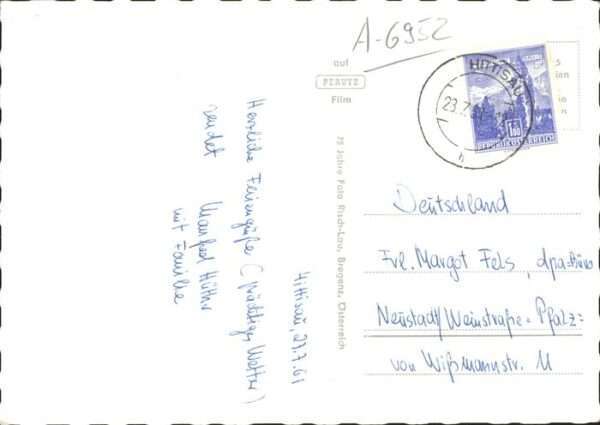 A-6952
auf
PERUTZ
Film
75 Jahre Foto Risch-Lau, Bregenz, Österreich
HITTISAU
23.7.
h
1.80
REPUBLIK ÖSTERREICH
Hittisau, 22.7.61
Herzliche Feriengrüße (prächtiges Wetter)
sendet
Manfred
mit Familie
Deutschland
Frl. Margot Fels, dpa-Büro
Neustadt/Weinstraße - Pfalz =
von Wißmannstr. 11